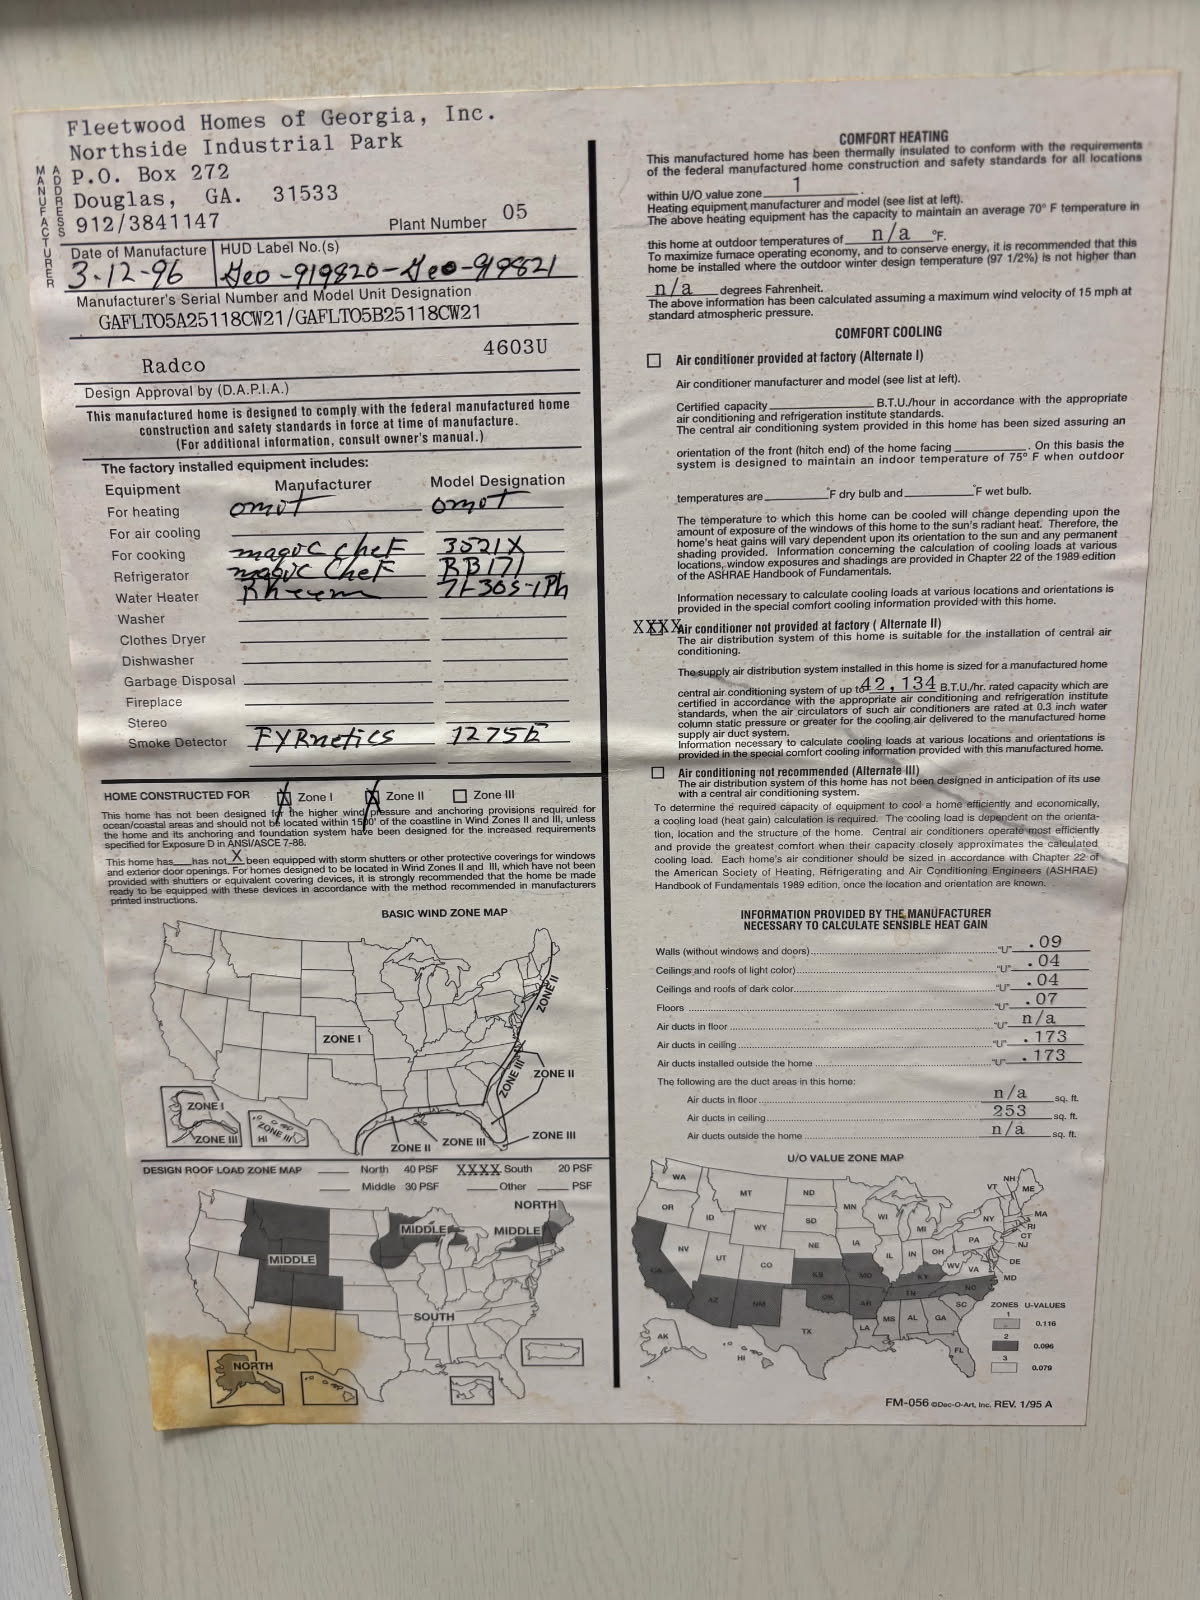 Fleetwood Homes of Georgia, Inc.
Northside Industrial Park
P.O. Box 272
Douglas, GA. 31533
912/3841147
MANUFACTURER
ADDRESS
Plant Number 05
Date of Manufacture
HUD Label No.(s)
3-12-96
Geo-919820-Geo-919821
Manufacturer's Serial Number and Model Unit Designation
GAFLT05A25118CW21/GAFLT05B25118CW21
4603U
Radco
Design Approval by (D.A.P.I.A.)
This manufactured home is designed to comply with the federal manufactured home
construction and safety standards in force at time of manufacture.
(For additional information, consult owner's manual.)
The factory installed equipment includes:
Equipment Manufacturer Model Designation
For heating omit omit
For air cooling
For cooking magic chef 3521X
Refrigerator magic chef RB171
Water Heater Rheem
Washer
Clothes Dryer
Dishwasher
Garbage Disposal
Fireplace
Stereo
Smoke Detector FYRnetics 1275E
HOME CONSTRUCTED FOR X Zone I X Zone II Zone III
This home has not been designed for the higher wind pressure and anchoring provisions required for
ocean/coastal areas and should not be located within 1500' of the coastline in Wind Zones II and III, unless
the home and its anchoring and foundation system have been designed for the increased requirements
specified for Exposure D in ANSI/ASCE 7-88.
This home has___has not X been equipped with storm shutters or other protective coverings for windows
and exterior door openings. For homes designed to be located in Wind Zones II and III, which have not been
provided with shutters or equivalent covering devices, it is strongly recommended that the home be made
ready to be equipped with these devices in accordance with the method recommended in manufacturers
printed instructions.
BASIC WIND ZONE MAP
ZONE I
ZONE II
ZONE III
ZONE II
ZONE I
ZONE III
HI
ZONE III
ZONE II
ZONE III
ZONE III
DESIGN ROOF LOAD ZONE MAP ____ North 40 PSF XXXX South 20 PSF
____ Middle 30 PSF ____ Other ____ PSF
NORTH
MIDDLE
MIDDLE
MIDDLE
SOUTH
NORTH
COMFORT HEATING
This manufactured home has been thermally insulated to conform with the requirements
of the federal manufactured home construction and safety standards for all locations
within U/O value zone 1 .
Heating equipment manufacturer and model (see list at left).
The above heating equipment has the capacity to maintain an average 70° F temperature in
this home at outdoor temperatures of n/a °F.
To maximize furnace operating economy, and to conserve energy, it is recommended that this
home be installed where the outdoor winter design temperature (97 1/2%) is not higher than
n/a degrees Fahrenheit.
The above information has been calculated assuming a maximum wind velocity of 15 mph at
standard atmospheric pressure.
COMFORT COOLING
Air conditioner provided at factory (Alternate I)
Air conditioner manufacturer and model (see list at left).
Certified capacity____ B.T.U./hour in accordance with the appropriate
air conditioning and refrigeration institute standards.
The central air conditioning system provided in this home has been sized assuring an
orientation of the front (hitch end) of the home facing ____. On this basis the
system is designed to maintain an indoor temperature of 75° F when outdoor
temperatures are____°F dry bulb and____°F wet bulb.
The temperature to which this home can be cooled will change depending upon the
amount of exposure of the windows of this home to the sun's radiant heat. Therefore, the
home's heat gains will vary dependent upon its orientation to the sun and any permanent
shading provided. Information concerning the calculation of cooling loads at various
locations, window exposures and shadings are provided in Chapter 22 of the 1989 edition
of the ASHRAE Handbook of Fundamentals.
Information necessary to calculate cooling loads at various locations and orientations is
provided in the special comfort cooling information provided with this home.
XXXX Air conditioner not provided at factory ( Alternate II)
The air distribution system of this home is suitable for the installation of central air
conditioning.
The supply air distribution system installed in this home is sized for a manufactured home
central air conditioning system of up to 42,134 B.T.U./hr. rated capacity which are
certified in accordance with the appropriate air conditioning and refrigeration institute
standards, when the air circulators of such air conditioners are rated at 0.3 inch water
column static pressure or greater for the cooling air delivered to the manufactured home
supply air duct system.
Information necessary to calculate cooling loads at various locations and orientations is
provided in the special comfort cooling information provided with this manufactured home.
Air conditioning not recommended (Alternate III)
The air distribution system of this home has not been designed in anticipation of its use
with a central air conditioning system.
To determine the required capacity of equipment to cool a home efficiently and economically,
a cooling load (heat gain) calculation is required. The cooling load is dependent on the orienta-
tion, location and the structure of the home. Central air conditioners operate most efficiently
and provide the greatest comfort when their capacity closely approximates the calculated
cooling load. Each home's air conditioner should be sized in accordance with Chapter 22 of
the American Society of Heating, Refrigerating and Air Conditioning Engineers (ASHRAE)
Handbook of Fundamentals 1989 edition, once the location and orientation are known.
INFORMATION PROVIDED BY THE MANUFACTURER
NECESSARY TO CALCULATE SENSIBLE HEAT GAIN
Walls (without windows and doors) "U" .09
Ceilings and roofs of light color) "U" .04
Ceilings and roofs of dark color "U" .04
Floors "U" .07
Air ducts in floor "U" n/a
Air ducts in ceiling "U" .173
Air ducts installed outside the home "U" .173
The following are the duct areas in this home:
Air ducts in floor n/a sq. ft.
Air ducts in ceiling 253 sq. ft.
Air ducts outside the home n/a sq. ft.
U/O VALUE ZONE MAP
WA MT ND MN WI MI NY VT NH ME
OR ID WY SD IA IL IN OH PA MA RI CT NJ
NV UT CO NE WV VA DE MD
CA AZ NM KS MO KY TN NC
OK AR SC
TX LA MS AL GA FL
AK HI
ZONES U-VALUES
1 0.116
2 0.096
3 0.079
FM-056 ©Dec-O-Art, Inc. REV. 1/95 A